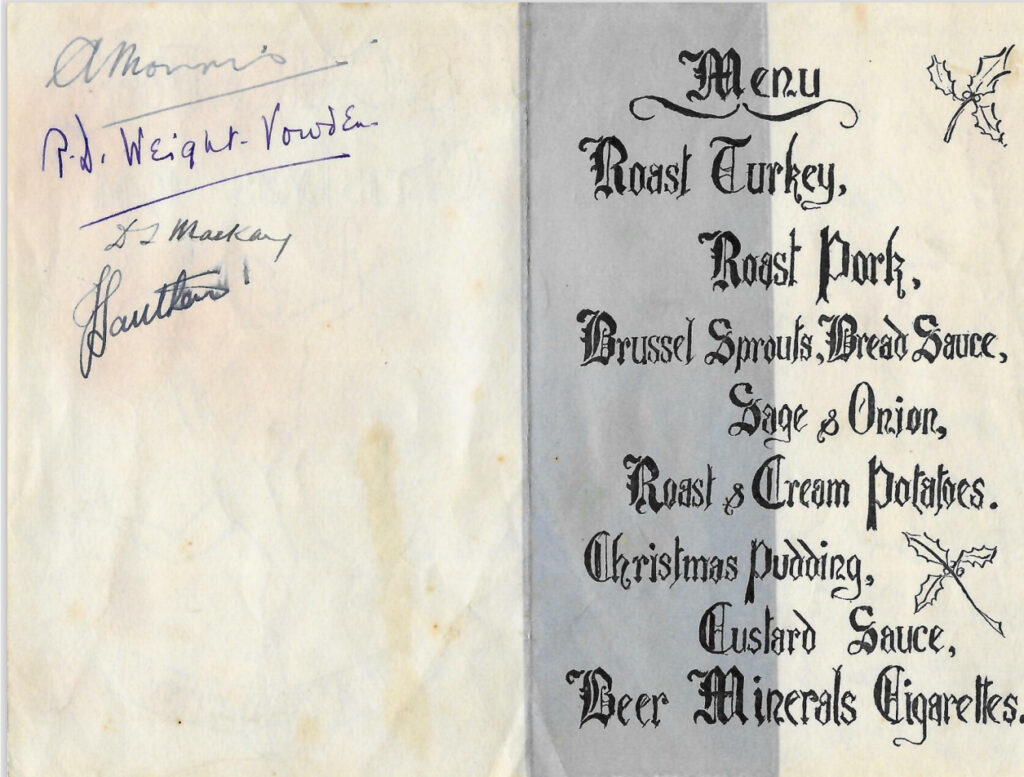 A Morris
R.D. Weight-Vowden
D I Mackay
Menu
Roast Turkey,
Roast Pork,
Brussel Sprouts, Bread Sauce,
Sage & Onion,
Roast & Cream Potatoes.
Christmas Pudding,
Custard Sauce,
Beer Minerals Cigarettes.